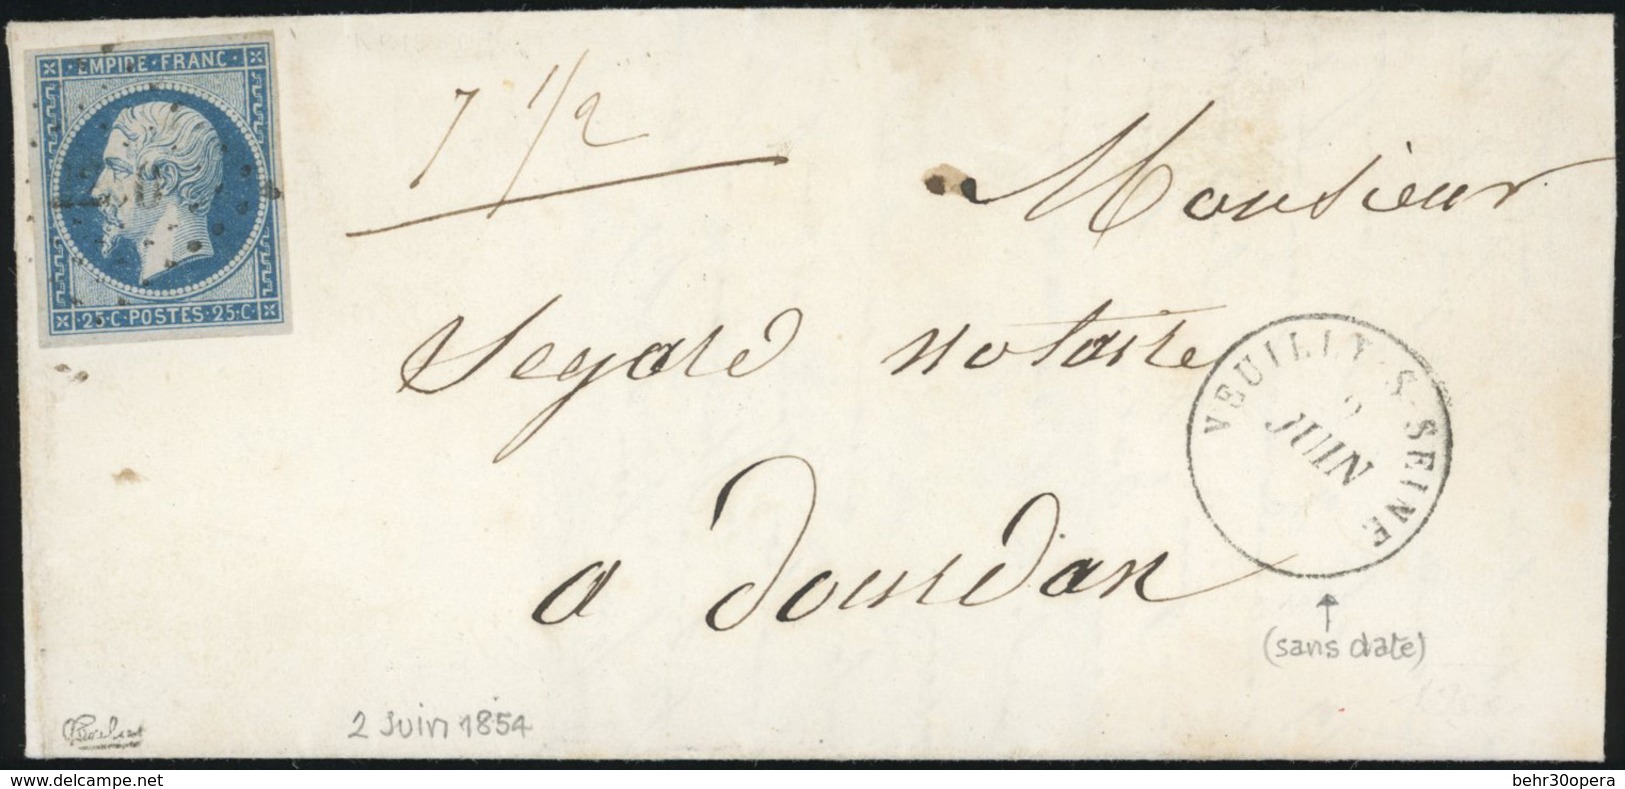 EMPIRE · FRANC ·
25 · C POSTES · 25 · C
7 1/2
Monsieur
Segard notaire
a dourdan
VEUILLY-S-SEINE
2
JUIN
(sans date)
2 Juin 1854
www.delcampe.net
behr30opera